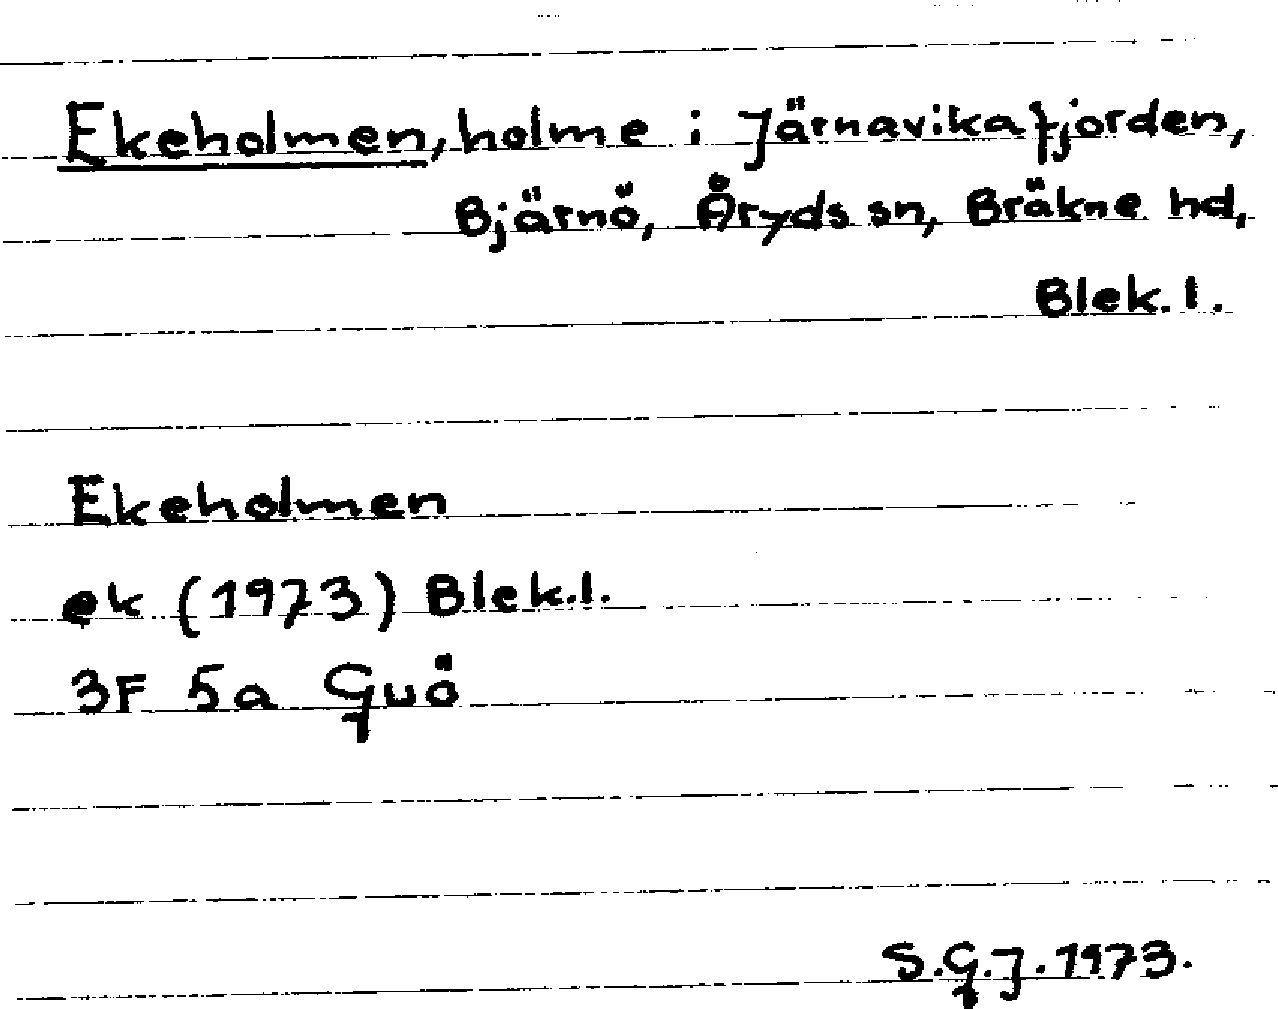 Ekeholmen, holme i Järnavikafjorden,
Bjärnö, Åryds sn, Bräkne hd,
Blek. l.
Ekeholmen
ek (1973) Blek.l.
3F 5a Guö
S.G.J. 1973.